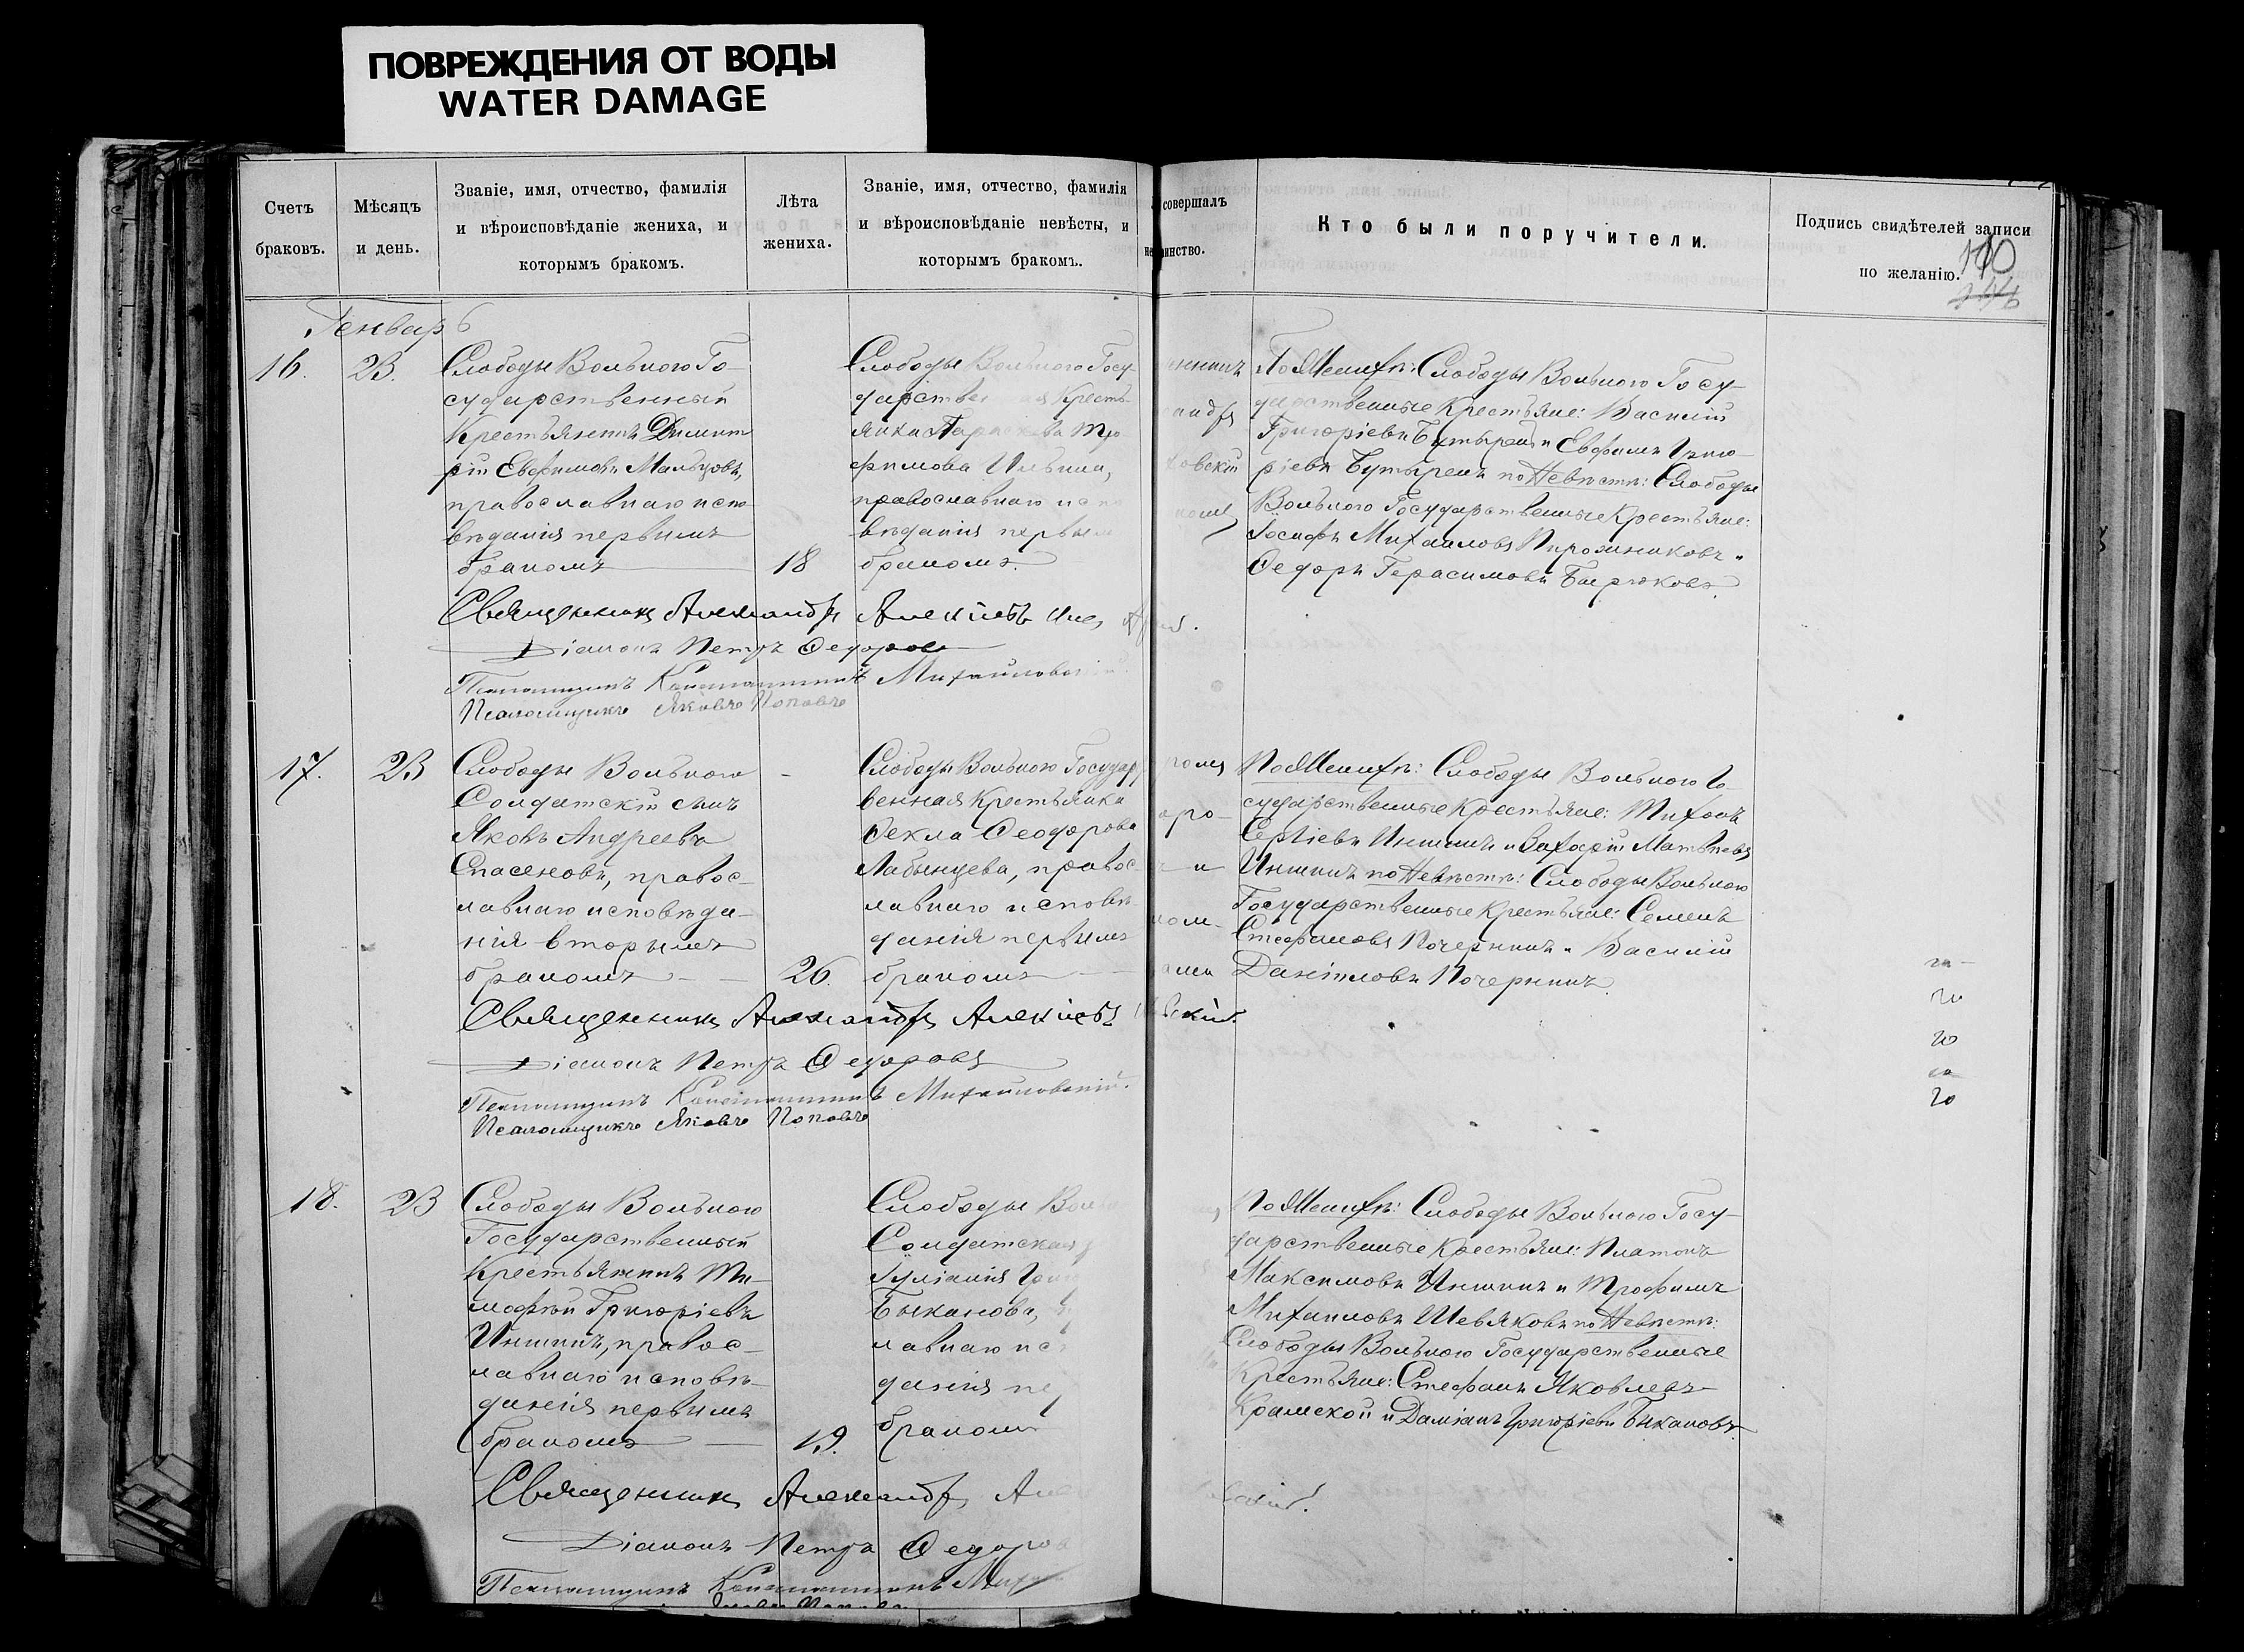 ПОВРЕЖДЕНИЯ ОТ ВОДЫ
WATER DAMAGE
Счетъ
браковъ.
Мѣсяцъ
и день.
Званіе, имя, отчество, фамилія
и вѣроисповѣданіе жениха, и
которымъ бракомъ.
Лѣта
жениха.
Званіе, имя, отчество, фамилія
и вѣроисповѣданіе невѣсты, и
которымъ бракомъ.
совершалъ
Кто были поручители.
Подпись свидѣтелей записи
по желанію.
Генварь
16.
23.
Слободы Вольнаго Го-
сударственный
Крестьянинъ Димит
рій Евфимовъ Мальцовъ,
православнаго испо
вѣданія первымъ
бракомъ
18
Слободы Вольнаго Госу-
Кресть-
янка Параскева Тро
фимова Ильина,
православнаго
вѣданія первым
бракомъ.
По Женихѣ: Слободы Вольнаго Госу-
дарственные Крестьяне: Василій
Григоріевъ Бутыревъ и Евфимъ Григо
ріевъ Бутыревъ по Невѣстѣ: Слободы
Вольнаго Государственные Крестьяне:
Іосифъ Михаиловъ Пирожниковъ и
Ѳедоръ Герасимовъ Бирюковъ.
Священникъ Александръ Алексіевъ
Діаконъ Петръ Ѳедоровъ
Псаломщикъ Константинъ Михайловскій
Псаломщикъ Яковъ Поповъ
17.
23
Слободы Вольнаго
Солдатскій сынъ
Яковъ Андреевъ
Спасеновъ, правос-
лавнаго исповѣда-
нія вторымъ
бракомъ
26.
Слободы Вольнаго Государ
венная Крестьянка
Ѳекла Ѳеодорова
Лабынцева, правос-
лавнаго исповѣ-
данія первымъ
бракомъ
По Женихѣ: Слободы Вольнаго Го-
сударственные Крестьяне: Тихонъ
Сергіевъ Иншинъ и Захарій Матвѣевъ
Иншинъ по Невѣстѣ: Слободы Вольнаго
Государственные Крестьяне: Семенъ
Стефановъ Почернинъ и Василій
Даніиловъ Почернинъ.
Священникъ Александръ Алексіевъ
Діаконъ Петръ Ѳедоровъ
Псаломщикъ Константинъ Михайловскій.
Псаломщикъ Яковъ Поповъ
18.
23
Слободы Вольнаго
Государственный
Крестьянинъ Ти-
мофѣй Григоріевъ
Иншинъ, правос-
лавнаго исповѣ-
данія первымъ
бракомъ
19.
Слободы
Солдатская
Іуліанія
Быканова,
лавнаго
данія
бракомъ
По Женихѣ: Слободы Вольнаго Госу-
дарственные Крестьяне: Платонъ
Максимовъ Иншинъ и Трофимъ
Михаиловъ Шевяковъ по Невѣстѣ:
Слободы Вольнаго Государственные
Крестьяне: Стефанъ Яковлевъ
Крамской и Даміанъ Григоріевъ Быкановъ.
Священникъ Александръ
Діаконъ Петръ Ѳедоров
Псаломщикъ Константинъ